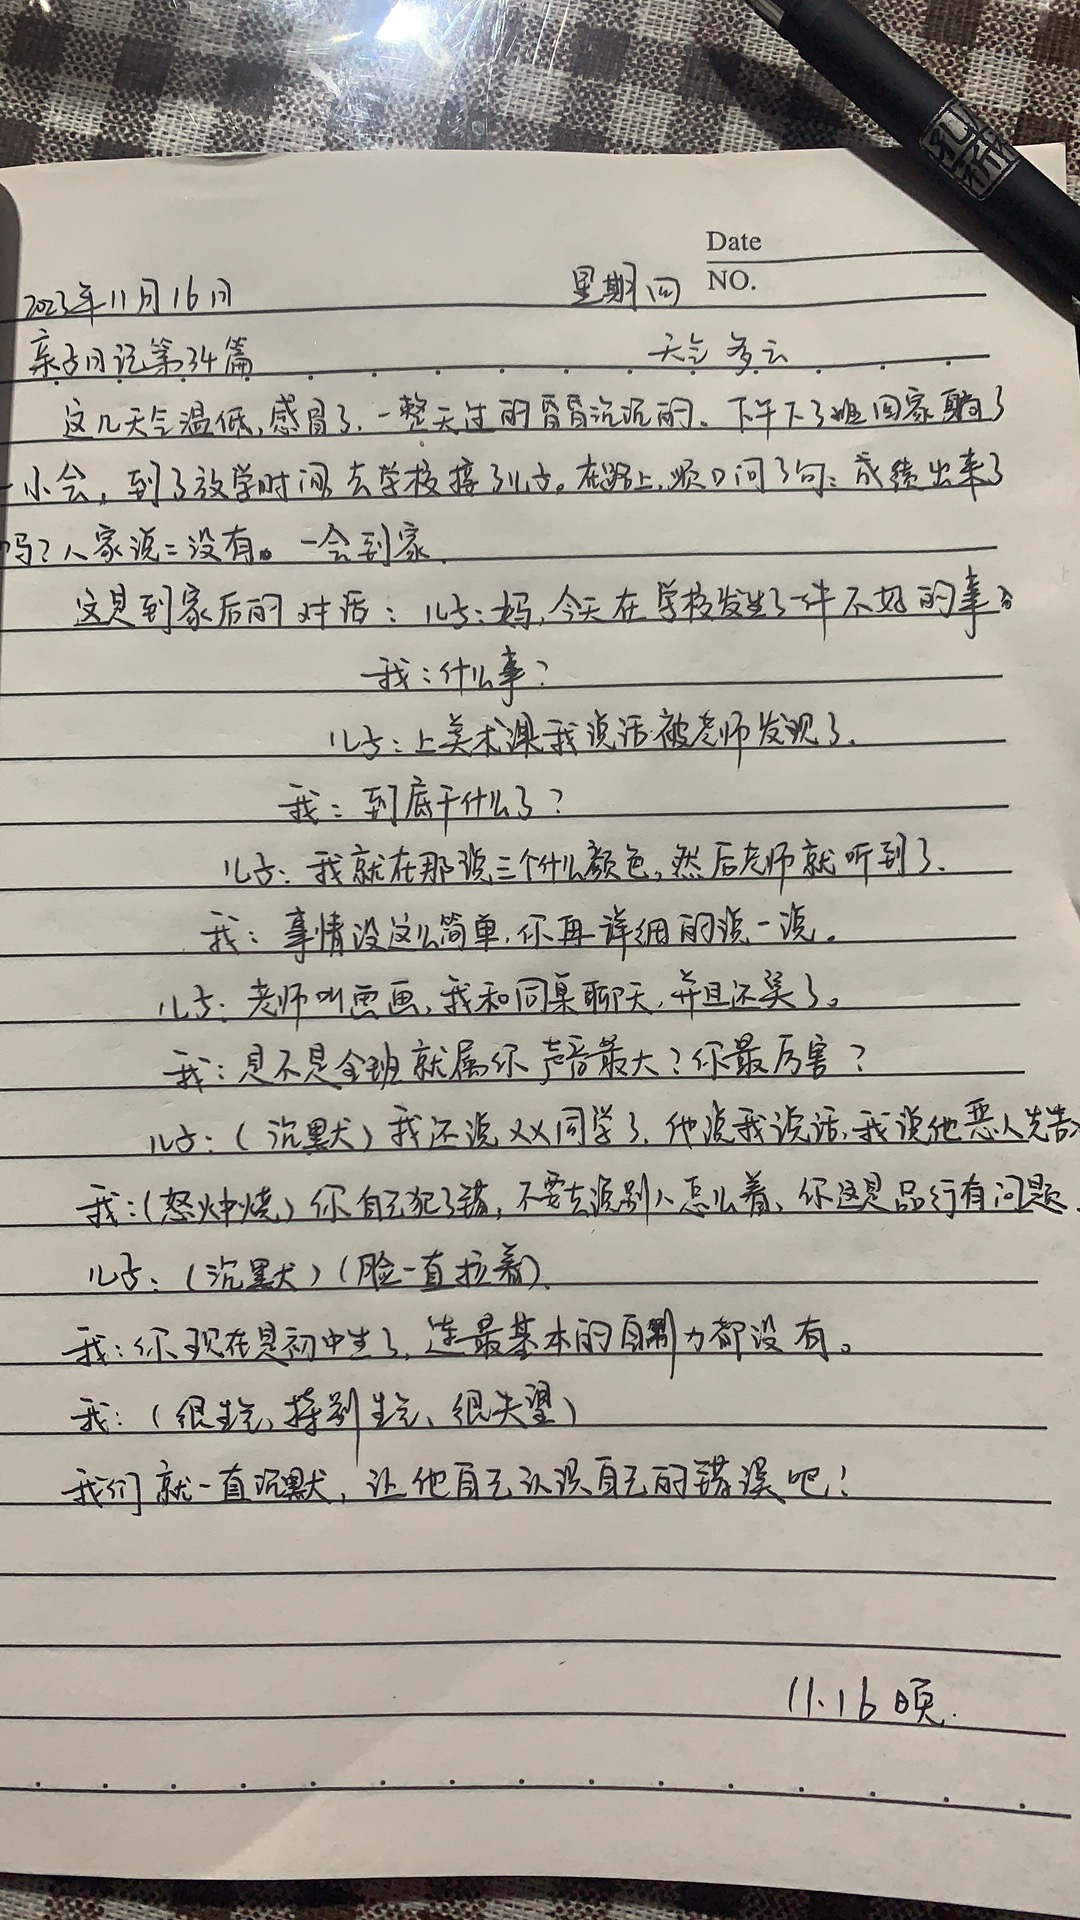 Date
NO.
2023年11月16日 星期四
亲子日记第34篇 天气多云
这几天气温低,感冒了,一整天过的昏昏沉沉的。下午下了班回家躺了
一小会,到了放学时间去学校接了儿子。在路上,顺口问了句:成绩出来了
吗?人家说:没有。一会到家.
这是到家后的对话:儿子:妈,今天在学校发生了一件不好的事
我:什么事?
儿子:上美术课我说话被老师发现了.
我:到底干什么了?
儿子:我就在那说三个什么颜色,然后老师就听到了.
我:事情没这么简单,你再详细的说一说。
儿子:老师叫画画,我和同桌聊天,并且还笑了。
我:是不是全班就属你声音最大?你最厉害?
儿子:(沉默)我还说XX同学了,他说我说话,我说他恶人先告
我:(怒火中烧)你自己犯了错,不要去说别人怎么着、你这是品行有问题.
儿子:(沉默)(脸一直拉着).
我:你现在是初中生了,连最基本的自制力都没有。
我:(很生气,特别生气、很失望)
我们就一直沉默,让他自己认识自己的错误吧!
11.16